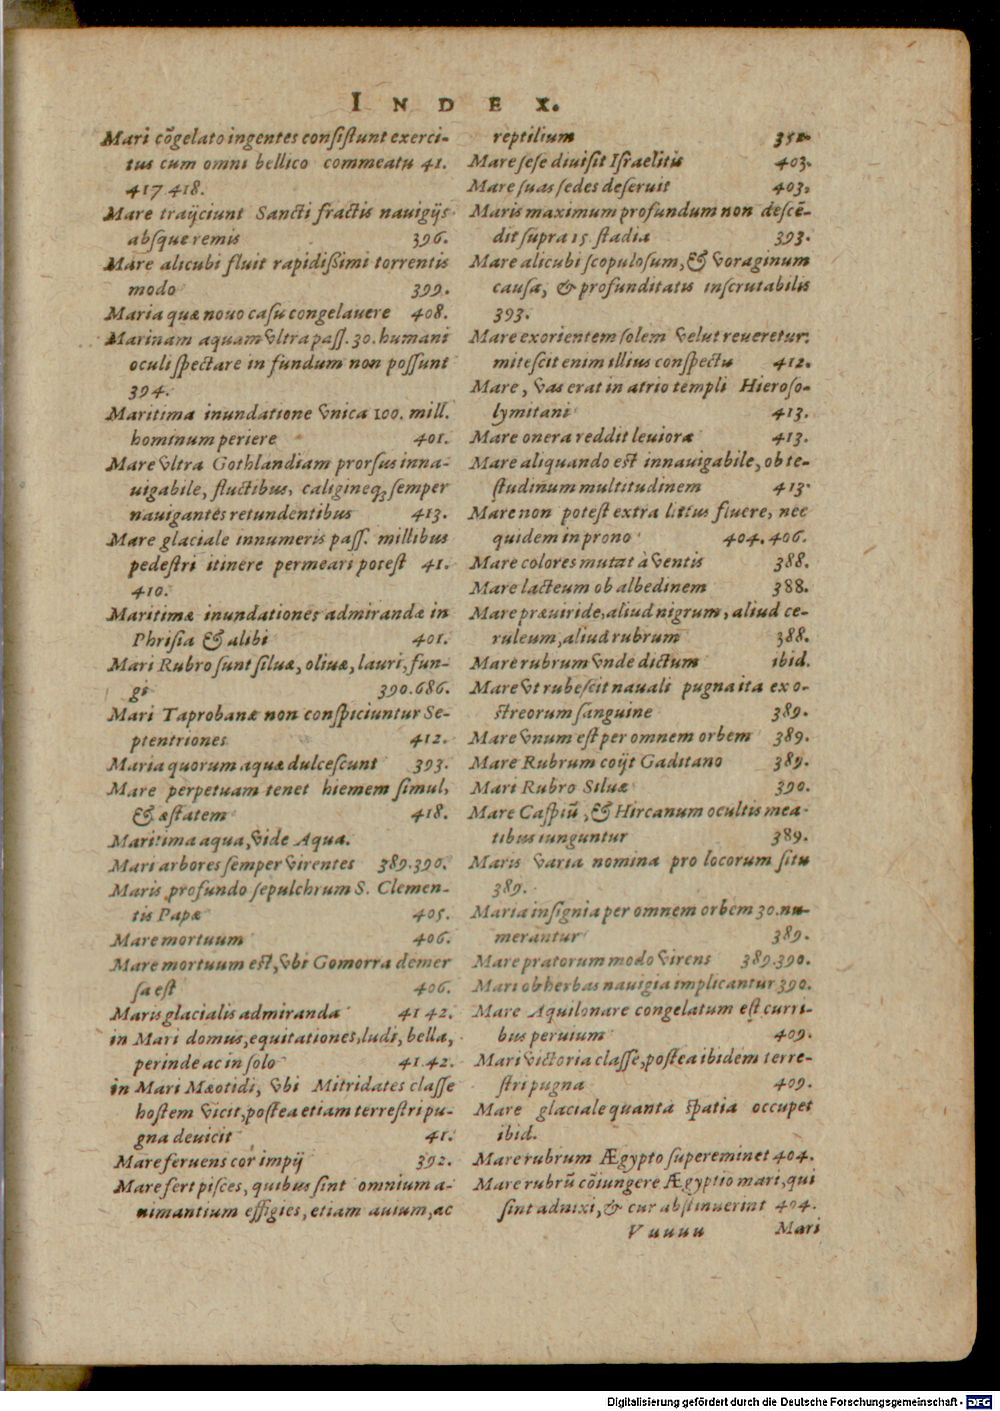 INDEX.
Mari cõgelato ingentes consistunt exerci-
tus cum omni bellico commeatu 41.
417 418.
Mare traijciunt Sancti fractis nauigijs
absque remis 396.
Mare alicubi fluit rapidißimi torrentis
modo 399.
Maria quæ nouo casu congelauere 408.
Marinam aquam vltra pass. 30. humani
oculi spectare in fundum non possunt
394.
Maritima inundatione vnica 100. mill.
hominum periere 401.
Mare vltra Gothlandiam prorsus inna-
uigabile, fluctibus, caligineq; semper
nauigantes retundentibus 413.
Mare glaciale innumeris pass. millibus
pedestri itinere permeari potest 41.
410.
Maritimæ inundationes admirandæ in
Phrisia & alibi 401.
Mari Rubro sunt siluæ, oliuæ, lauri, fun-
gi 390.686.
Mari Taprobanæ non conspiciuntur Se-
ptentriones 412.
Maria quorum aquæ dulcescunt 393.
Mare perpetuam tenet hiemem simul,
& æstatem 418.
Maritima aqua, vide Aqua.
Mari arbores semper virentes 389.390.
Maris profundo sepulchrum S. Clemen-
tis Papæ 405.
Mare mortuum 406.
Mare mortuum est, vbi Gomorra demer
sa est 406.
Maris glacialis admiranda 41 42.
in Mari domus, equitationes, ludi, bella,
perinde ac in solo 41.42.
in Mari Mæotidi, vbi Mitridates classe
hostem vicit, postea etiam terrestri pu-
gna deuicit 41.
Mare feruens cor impij 392.
Mare fert pisces, quibus sint omnium a-
nimantium effigies, etiam auium, ac
reptilium 351.
Mare sese diuisit Israelitis 403.
Mare suas sedes deseruit 403.
Maris maximum profundum non descē-
dit supra 15. stadia 393.
Mare alicubi scopulosum, & voraginum
causa, & profunditatis inscrutabilis
393.
Mare exorientem solem velut reueretur:
mitescit enim illius conspectu 412.
Mare, vas erat in atrio templi Hieroso-
lymitani 413.
Mare onera reddit leuiora 413.
Mare aliquando est innauigabile, ob te-
studinum multitudinem 413.
Mare non potest extra littus fluere, nec
quidem in prono 404.406.
Mare colores mutat à ventis 388.
Mare lacteum ob albedinem 388.
Mare præuiride, aliud nigrum, aliud ce-
ruleum, aliud rubrum 388.
Mare rubrum vnde dictum ibid.
Mare vt rubescit nauali pugna ita ex o-
streorum sanguine 389.
Mare vnum est per omnem orbem 389.
Mare Rubrum coijt Gaditano 389.
Mari Rubro Siluæ 390.
Mare Caspiū, & Hircanum ocultis mea-
tibus iunguntur 389.
Maris varia nomina pro locorum situ
389.
Maria insignia per omnem orbem 30. nu-
merantur 389.
Mare pratorum modo virens 389.390.
Mari ob herbas nauigia implicantur 390.
Mare Aquilonare congelatum est curri-
bus peruium 409.
Mari victoria classe, postea ibidem terre-
stri pugna 409.
Mare glaciale quanta spatia occupet
ibid.
Mare rubrum Ægypto supereminet 404.
Mare rubrū cõiungere Ægyptio mari, qui
sint adnixi, & cur abstinuerint 404.
V uuuu Mari
Digitalisierung gefördert durch die Deutsche Forschungsgemeinschaft - DFG